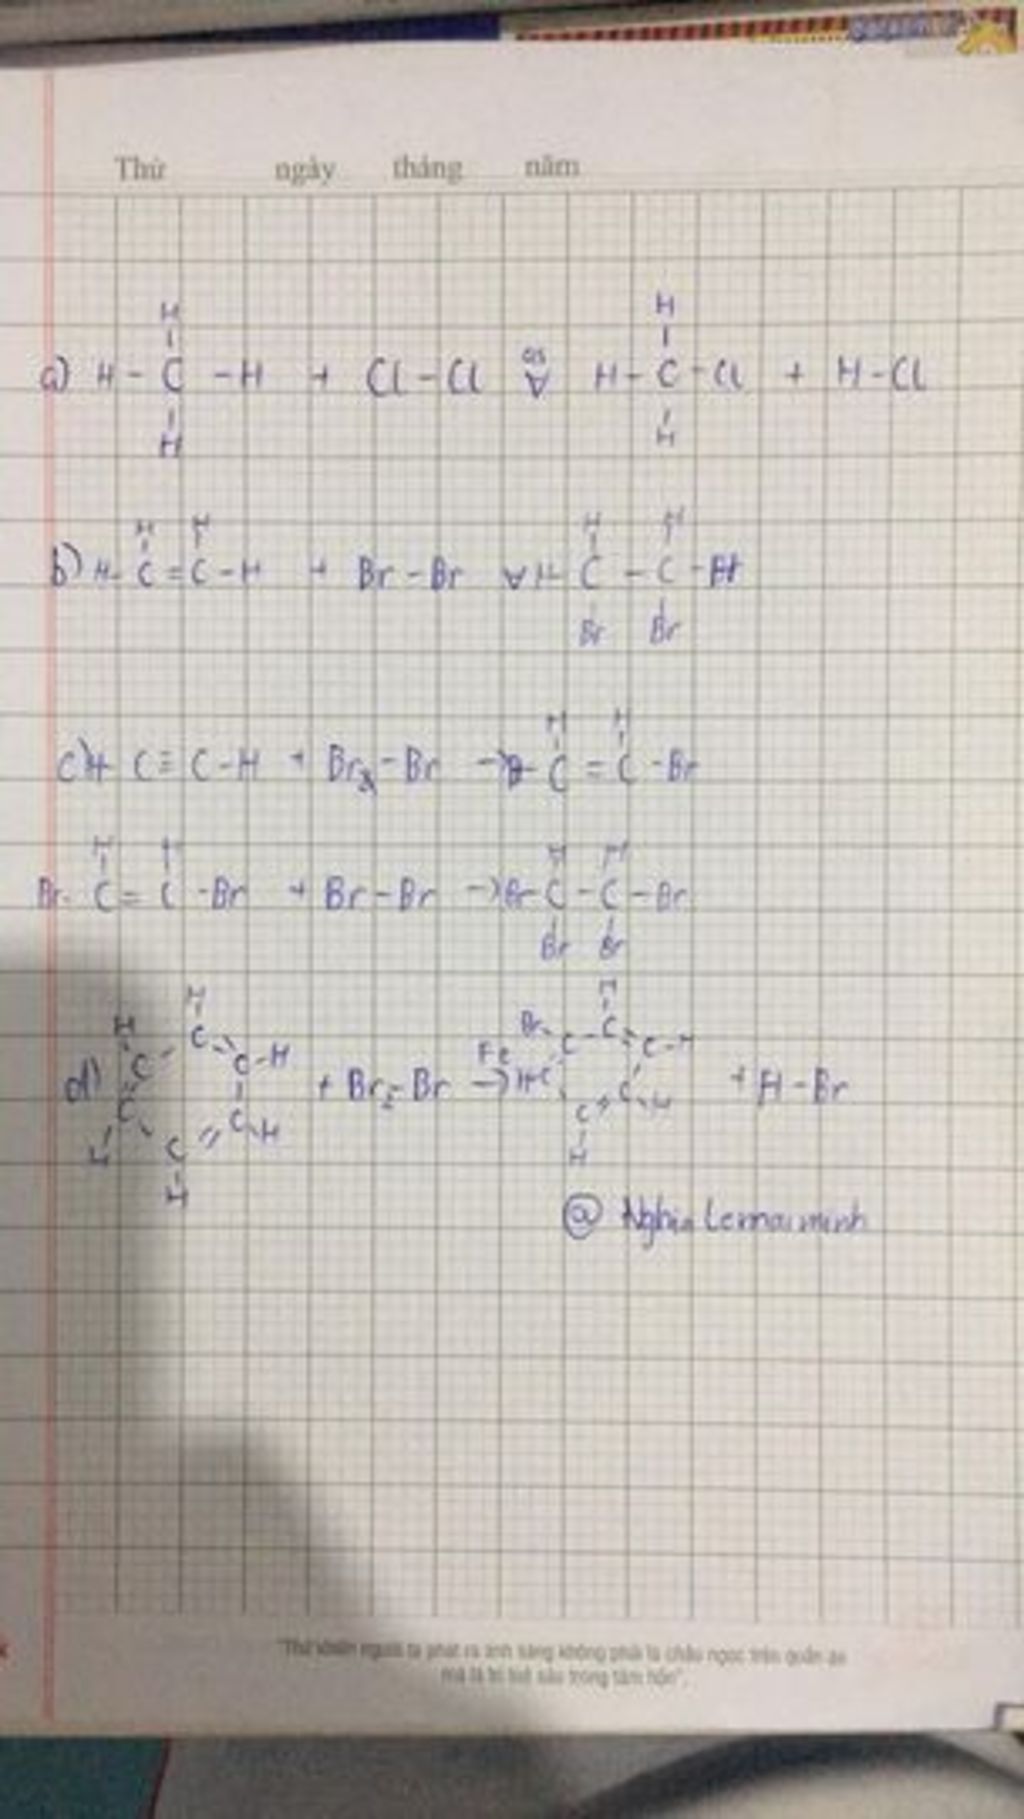 Thứ ngày tháng năm
H H
a) H - C - H + Cl - Cl as → H - C - Cl + H - Cl
H H
H H H H
b) H - C = C - H + Br - Br → H - C - C - H
Br Br
H H
c) H C ≡ C - H + Br - Br → Br - C = C - Br
H H H H
Br - C = C - Br + Br - Br → Br C - C - Br
Br Br
H H
H Br C
C C C C - H
d) C C - H + Br - Br Fe → H C + H - Br
C C - H C C H
H C H
H
@ Nghia Lemaiminh
"Thứ khiến người ta phát ra ánh sáng không phải là châu ngọc trên quần áo
mà là trí tuệ sâu trong tâm hồn".